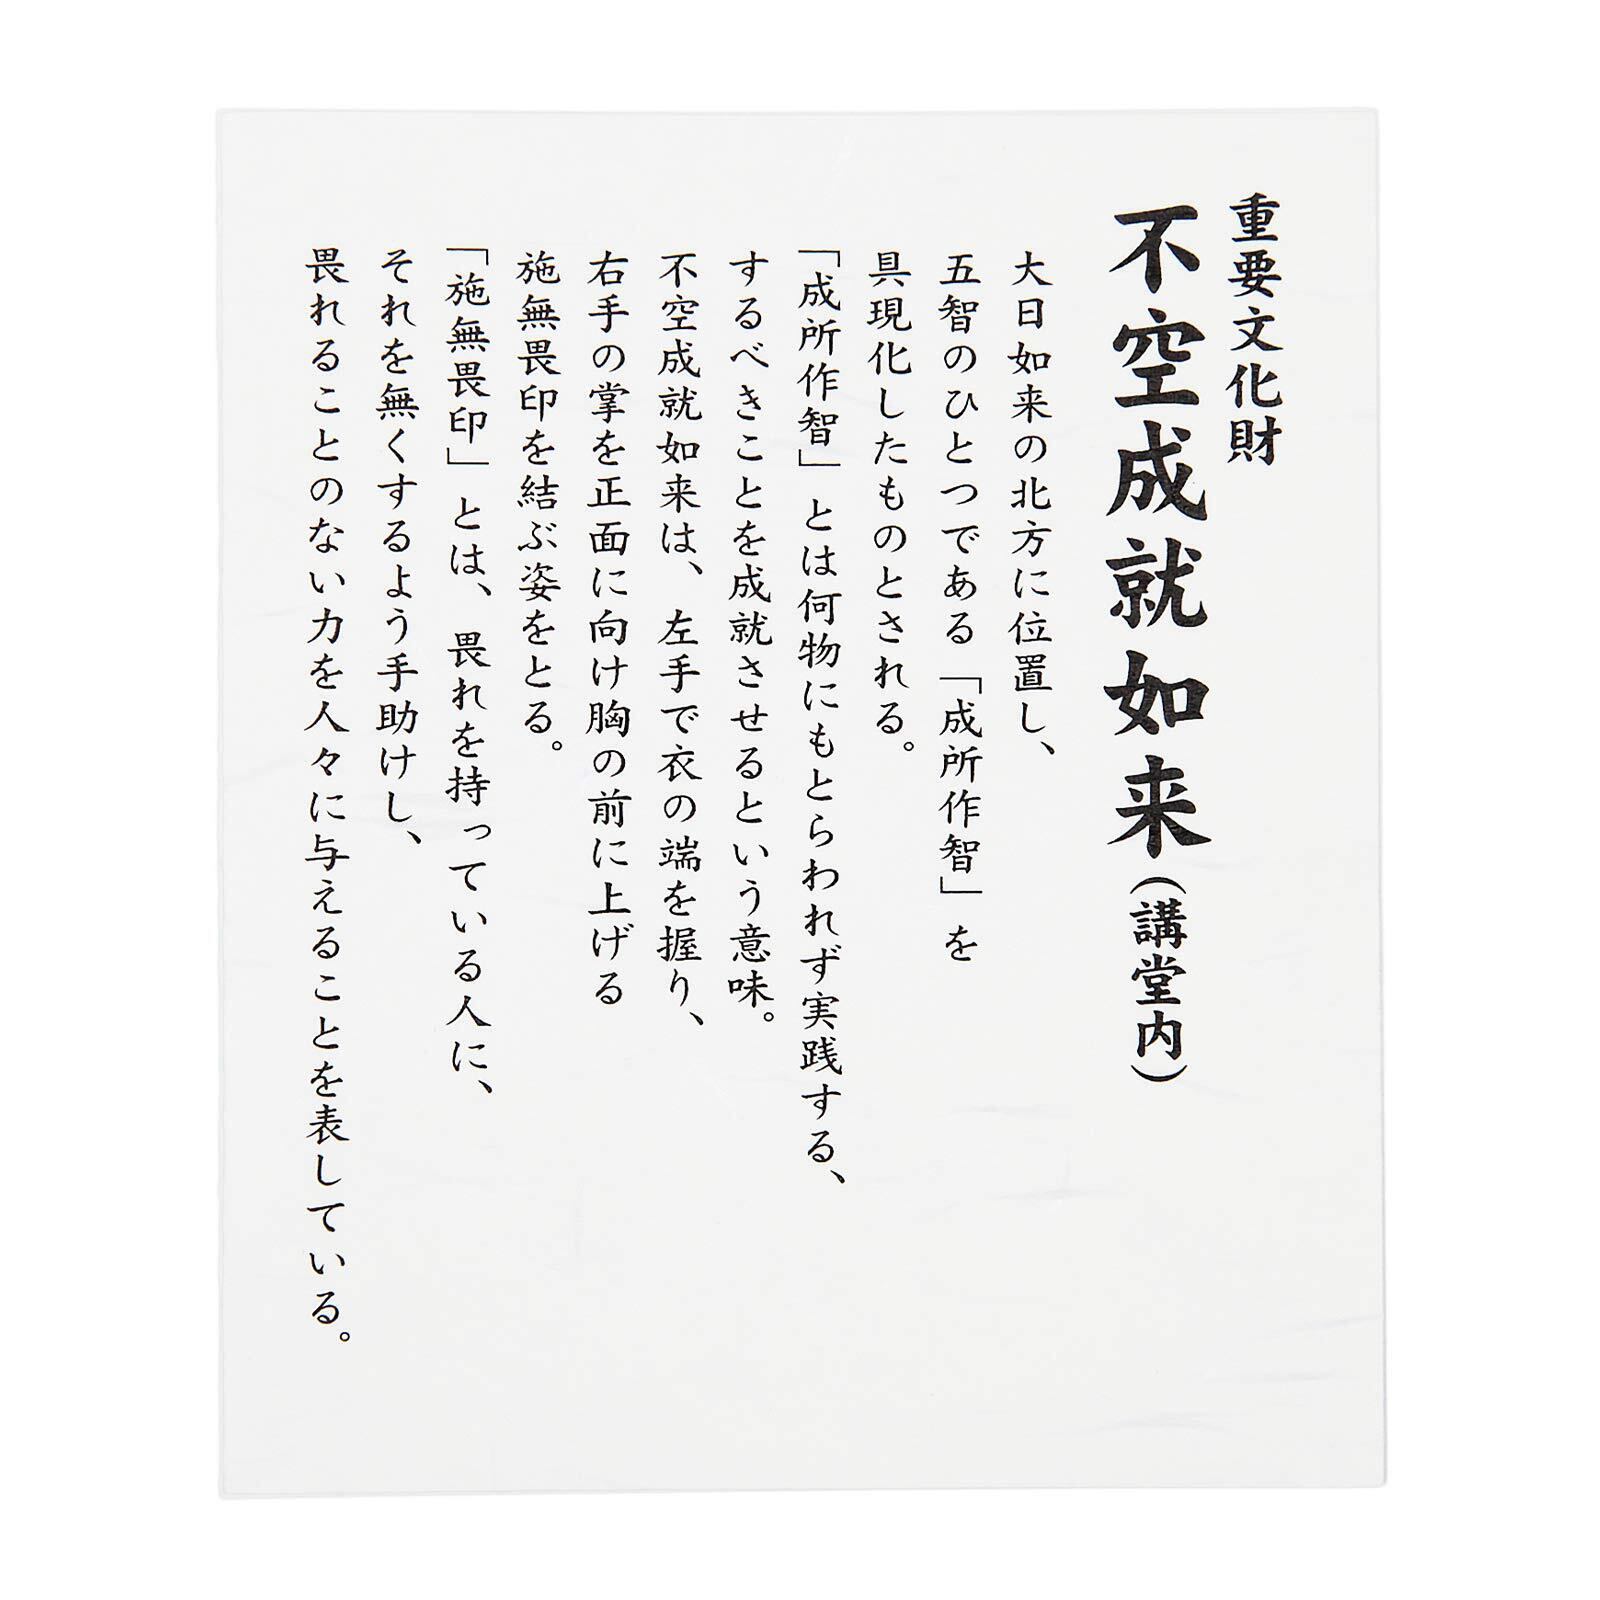 重要文化財
不空成就如来（講堂内）
大日如来の北方に位置し、
五智のひとつである「成所作智」を
具現化したものとされる。
「成所作智」とは何物にもとらわれず実践する、
するべきことを成就させるという意味。
不空成就如来は、左手で衣の端を握り、
右手の掌を正面に向け胸の前に上げる
施無畏印を結ぶ姿をとる。
「施無畏印」とは、畏れを持っている人に、
それを無くするよう手助けし、
畏れることのない力を人々に与えることを表している。